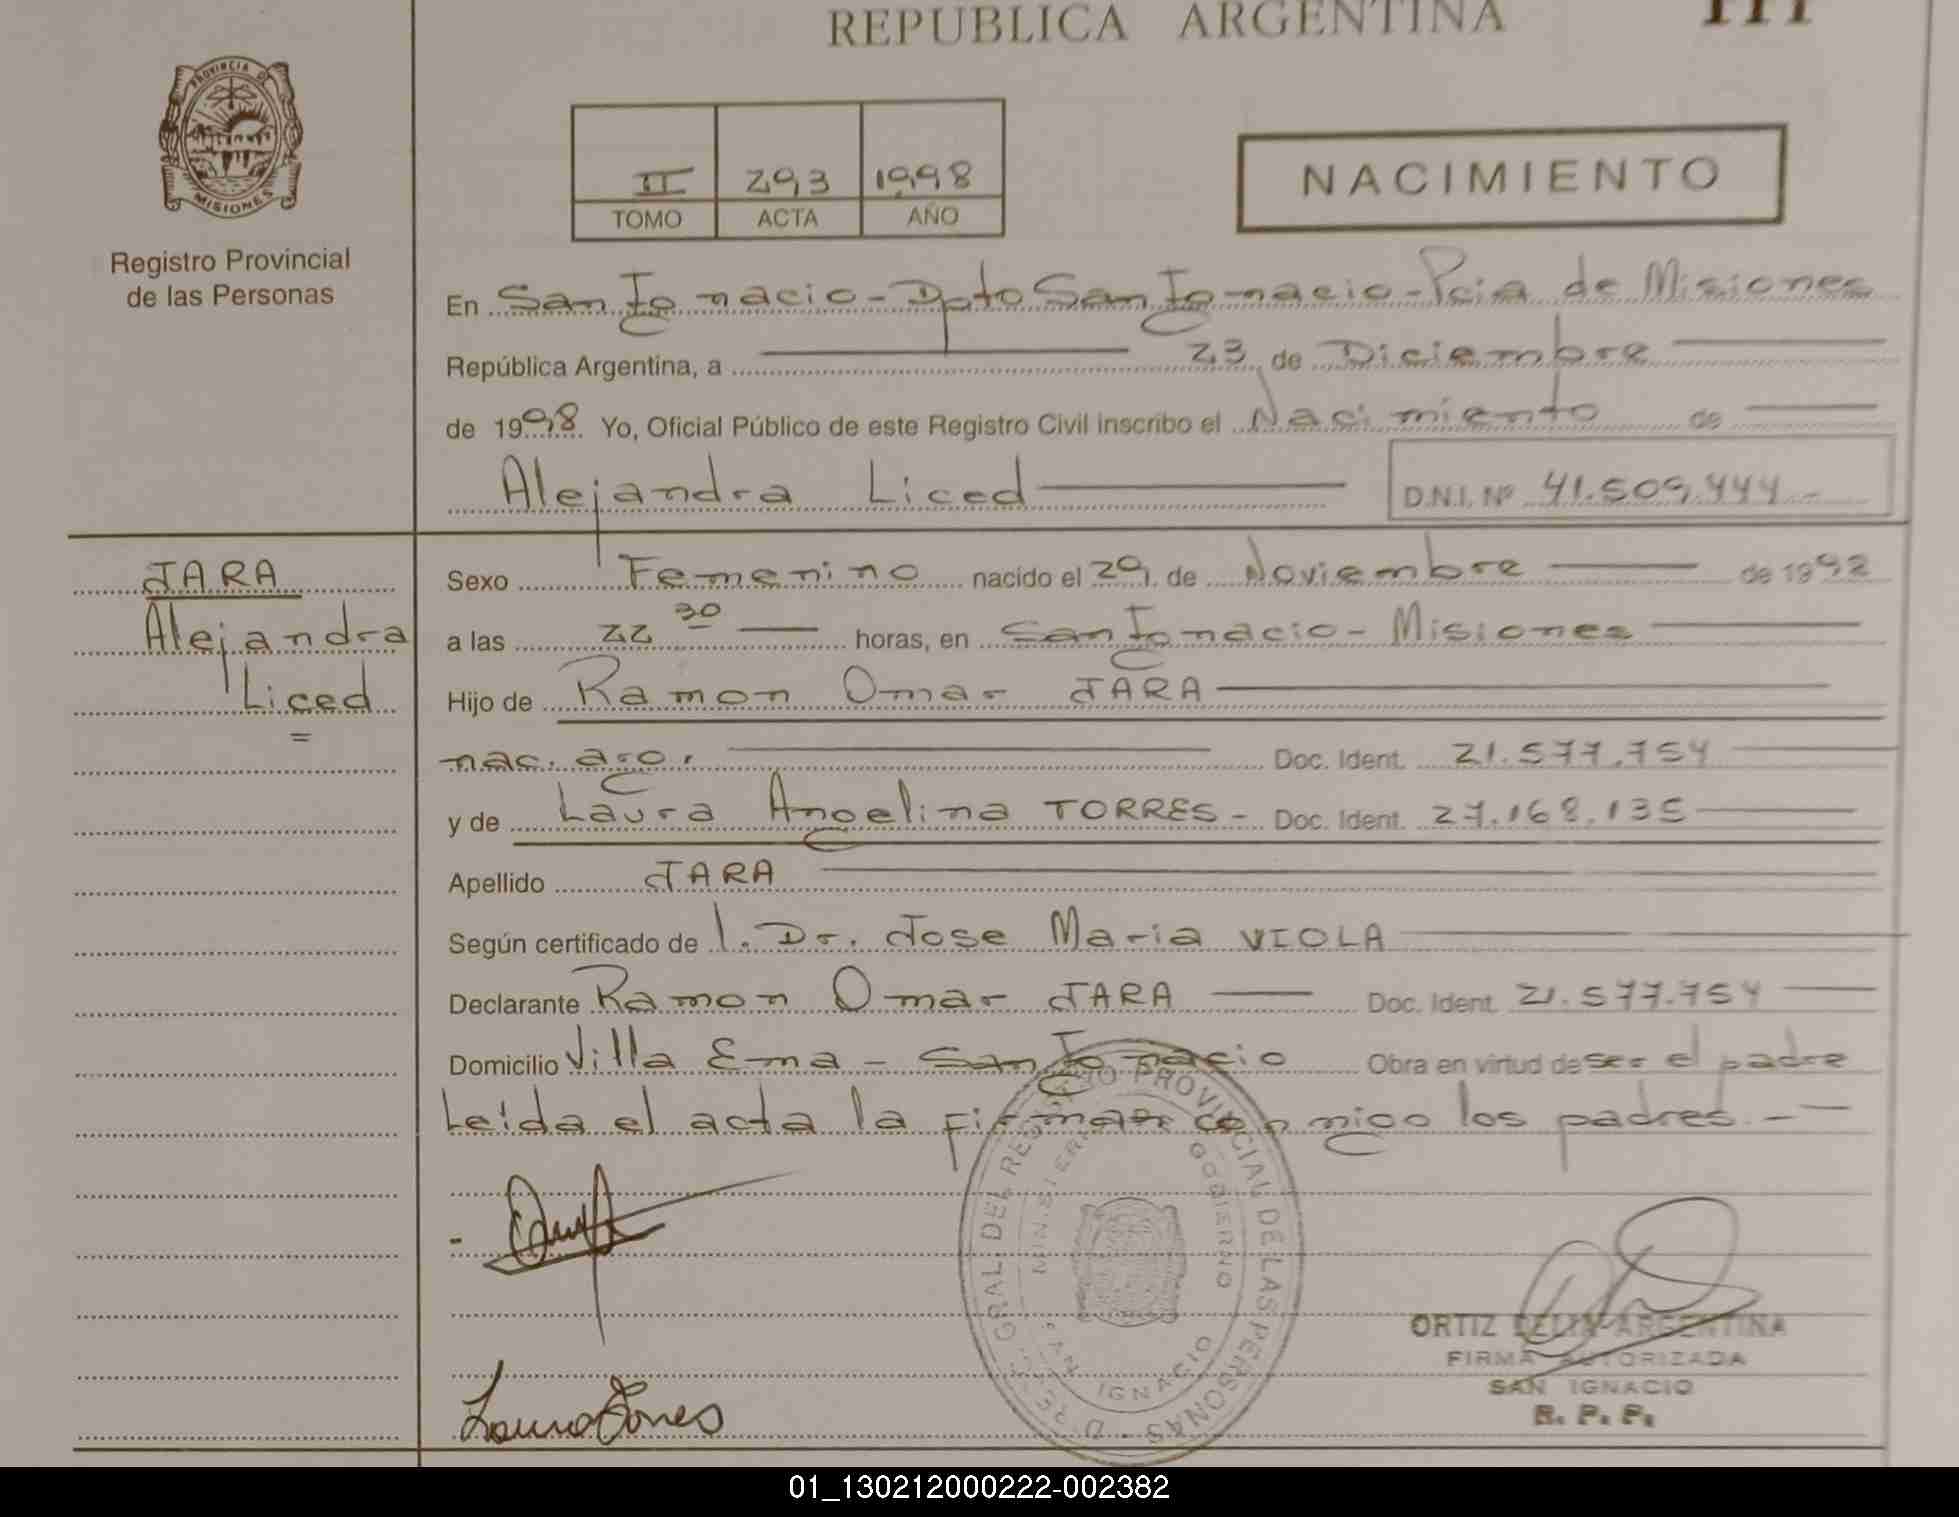 REPUBLICA ARGENTINA
PROVINCIA DE MISIONES
Registro Provincial
de las Personas
II 293 1998
TOMO ACTA AÑO
NACIMIENTO
En San Ignacio - Dpto San Ignacio - Pcia de Misiones
República Argentina, a 23 de Diciembre
de 1998 Yo, Oficial Público de este Registro Civil inscribo el Nacimiento de
Alejandra Liced D.N.I. Nº 41.509.444 -
JARA
Alejandra
Liced
=
Sexo Femenino nacido el 29 de Noviembre de 1998
a las 22 30 horas, en San Ignacio - Misiones
Hijo de Ramon Omar JARA
nac. arg. Doc. Ident. 21.577.754
y de Laura Angelina TORRES - Doc. Ident. 27.168.135
Apellido JARA
Según certificado de l. Dr. Jose Maria VIOLA
Declarante Ramon Omar JARA Doc. Ident. 21.577.754
Domicilio Villa Ema - San Ignacio Obra en virtud de ser el padre
Leida el acta la firman conmigo los padres. -
Laura Torres
GRAL. DEL REGISTRO PROVINCIAL DE LAS PERSONAS
GOBIERNO
SAN IGNACIO
ORTIZ DELIA ARGENTINA
FIRMA AUTORIZADA
SAN IGNACIO
R. P. P.
01_130212000222-002382